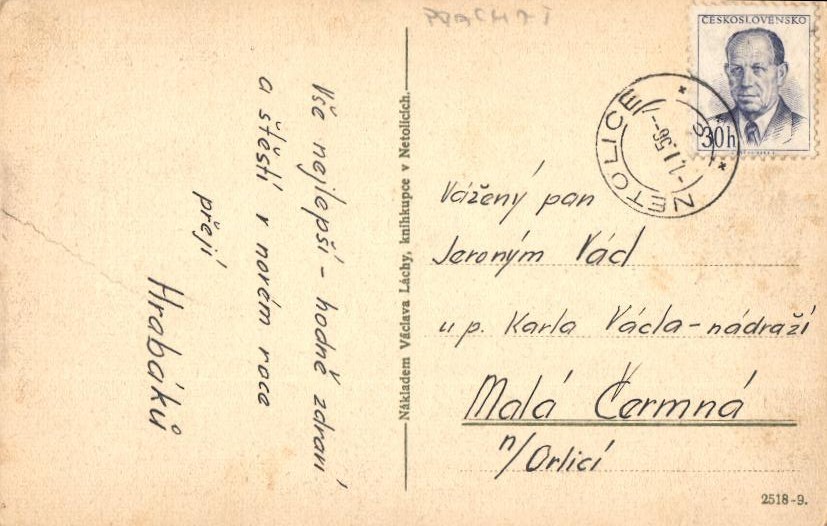 PRACHAT
ČESKOSLOVENSKO
30h
NETOLICE
-1.1.56--8
Vše nejlepší - hodně zdraví
a štěstí v novém roce
přejí
Hrabáků
Nákladem Václava Láchy, knihkupce v Netolicích.
Vážený pan
Jeroným Václ
u p. Karla Václa - nádraží
Malá Čermná
n/Orlicí
2518-9.